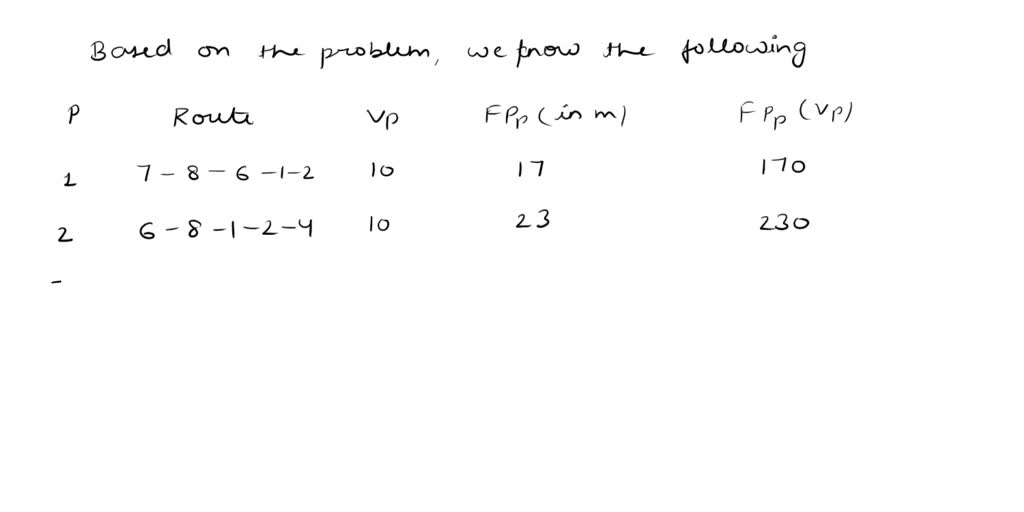 Based on the problem, we know the following
P Route Vp FPp (in m) FPp (Vp)
1 7 - 8 - 6 - 1 - 2 10 17 170
2 6 - 8 - 1 - 2 - 4 10 23 230
-